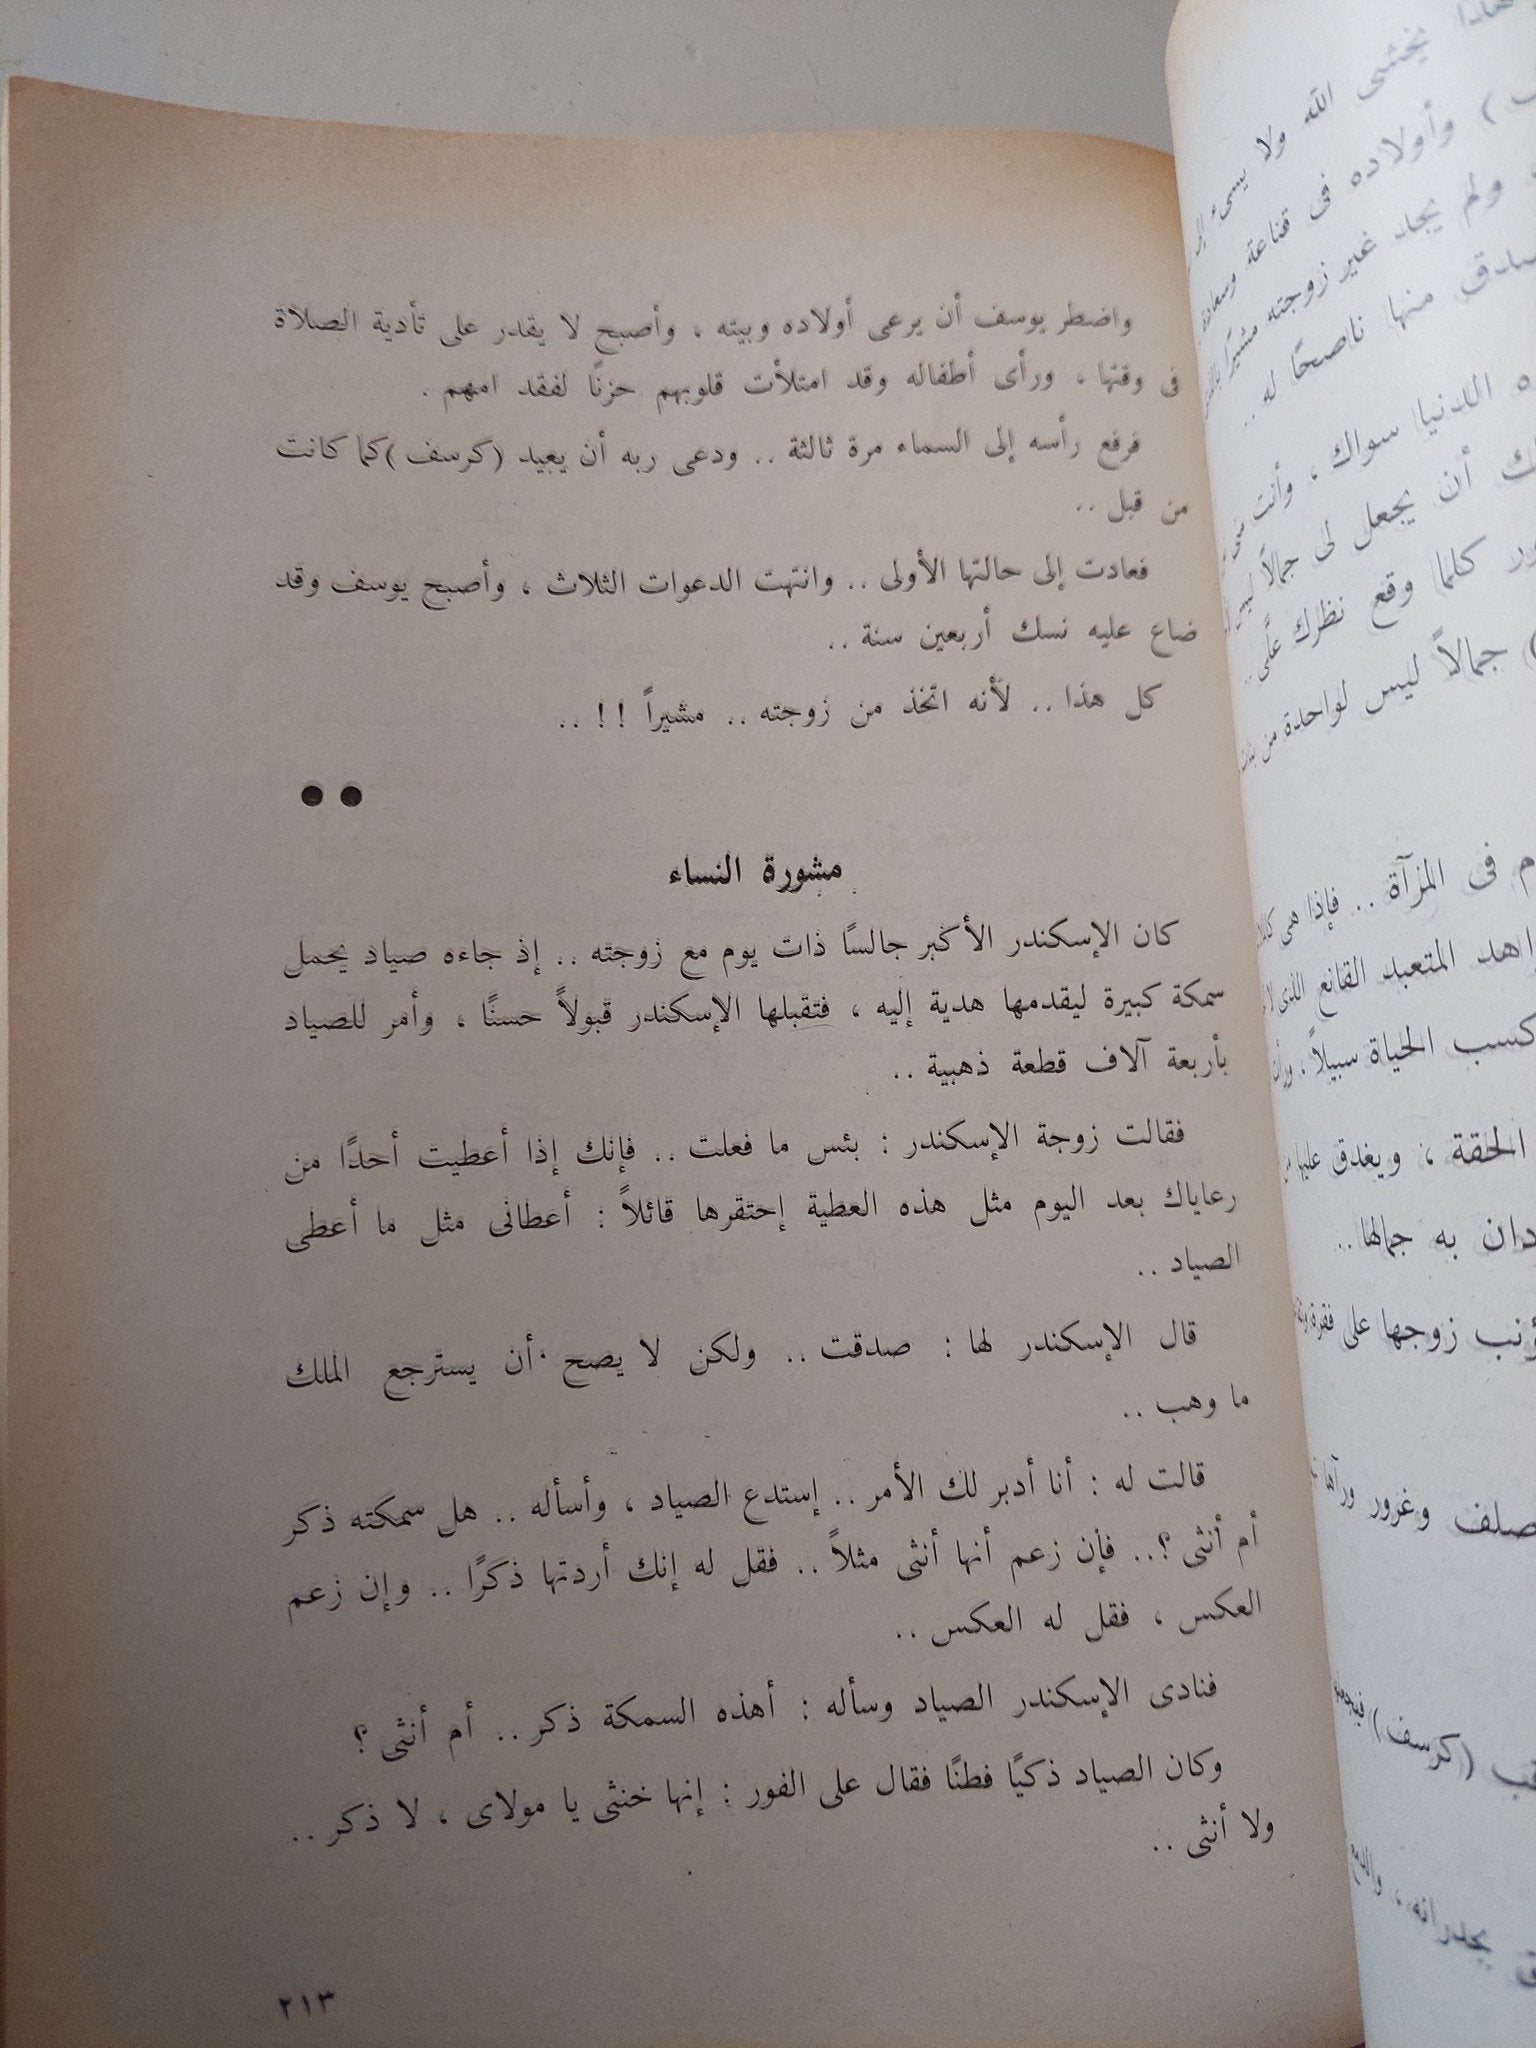 واضطر يوسف أن يرعى أولاده وبيته ، وأصبح لا يقدر على تأدية الصلاة
فى وقتها ، ورأى أطفاله وقد امتلأت قلوبهم حزنًا لفقد امهم .
فرفع رأسه إلى السماء مرة ثالثة .. ودعى ربه أن يعيد (كرسف)كما كانت
من قبل ..
فعادت إلى حالتها الأولى .. وانتهت الدعوات الثلاث ، وأصبح يوسف وقد
ضاع عليه نسك أربعين سنة ..
كل هذا .. لأنه اتخذ من زوجته .. مشيراً ! ! ..
●●
مشورة النساء
كان الإسكندر الأكبر جالسًا ذات يوم مع زوجته .. إذ جاءه صياد يحمل
سمكة كبيرة ليقدمها هدية إليه ، فتقبلها الإسكندر قبولاً حسنًا ، وأمر للصياد
بأربعة آلاف قطعة ذهبية ..
فقالت زوجة الإسكندر : بئس ما فعلت .. فإنك إذا أعطيت أحدًا من
رعاياك بعد اليوم مثل هذه العطية إحتقرها قائلاً : أعطانى مثل ما أعطى
الصياد ..
قال الإسكندر لها : صدقت .. ولكن لا يصح أن يسترجع الملك
ما وهب ..
قالت له : أنا أدبر لك الأمر .. إستدع الصياد ، وأسأله .. هل سمكته ذكر
أم أنثى ؟.. فإن زعم أنها أنثى مثلاً .. فقل له إنك أردتها ذكرًا .. وإن زعم
العكس ، فقل له العكس ..
فنادى الإسكندر الصياد وسأله : أهذه السمكة ذكر .. أم أنثى ؟
وكان الصياد ذكيًا فطنًا فقال على الفور : إنها خنثى يا مولاى ، لا ذكر ..
ولا أنثى ..
٢١٣
هذا يخشى الله ولا يسىء
) وأولاده فى قناعة
ولم يجد غير زوجته مشيرًا
منها ناصحًا له ..
الدنيا سواك ، وأنت
أن يجعل لى جمالاً ليس
كلما وقع نظرك علَّى ..
) جمالاً ليس لواحدة من
فى المرآة .. فإذا هى
المتعبد القانع الذى لا
كسب الحياة سبيلاً ،
الحقة ، ويغدق عليها
به جمالها ..
زوجها على فقره
وغرور ورآها
(كرسف)